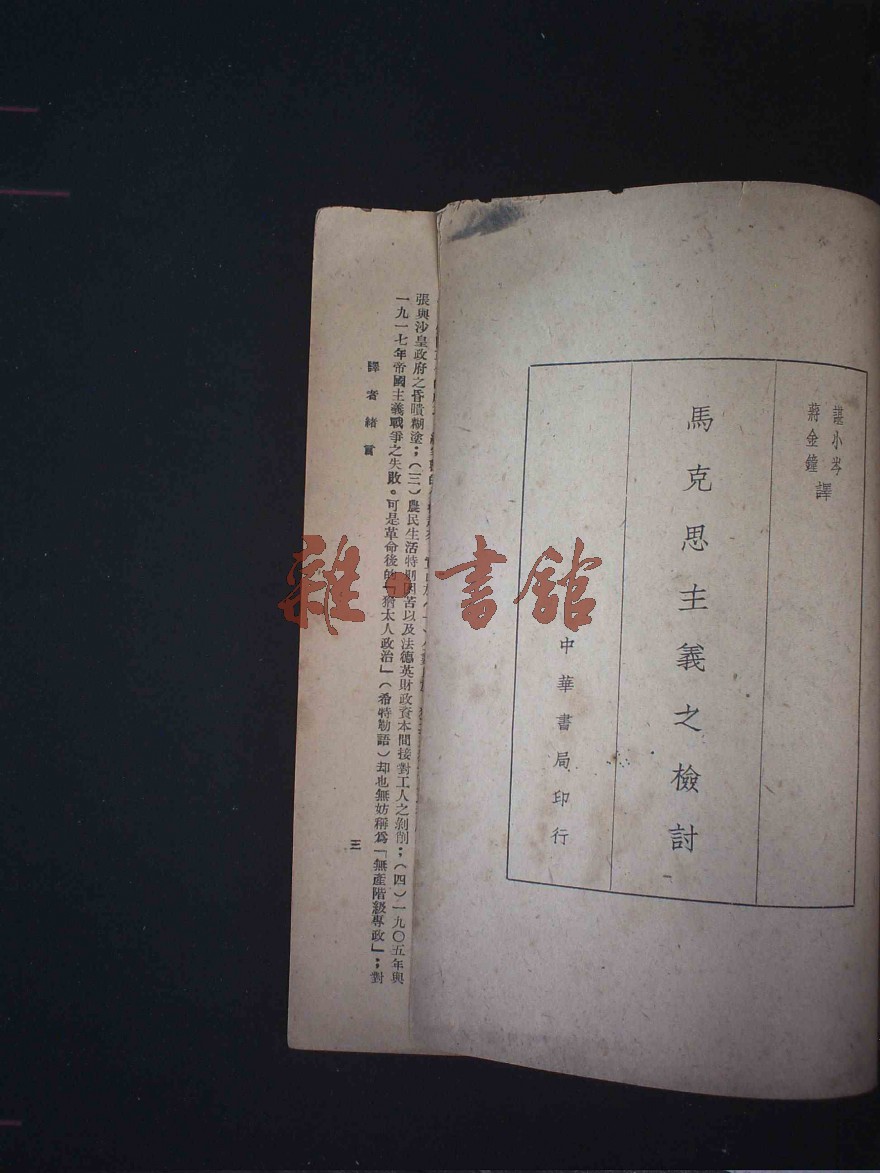 諶小岑
蔣金鐘
譯
馬克思主義之檢討
中華書局印行
張與沙皇政府之昏瞶糊塗；（三）農民生活特別困苦以及法德英財政資本間接對工人之剝削；（四）一九〇五年與
一九一七年帝國主義戰爭之失敗。可是革命後的「猶太人政治」（希特勒語）却也無妨稱爲「無產階級專政」；對
譯者緒言
三
雜·書館